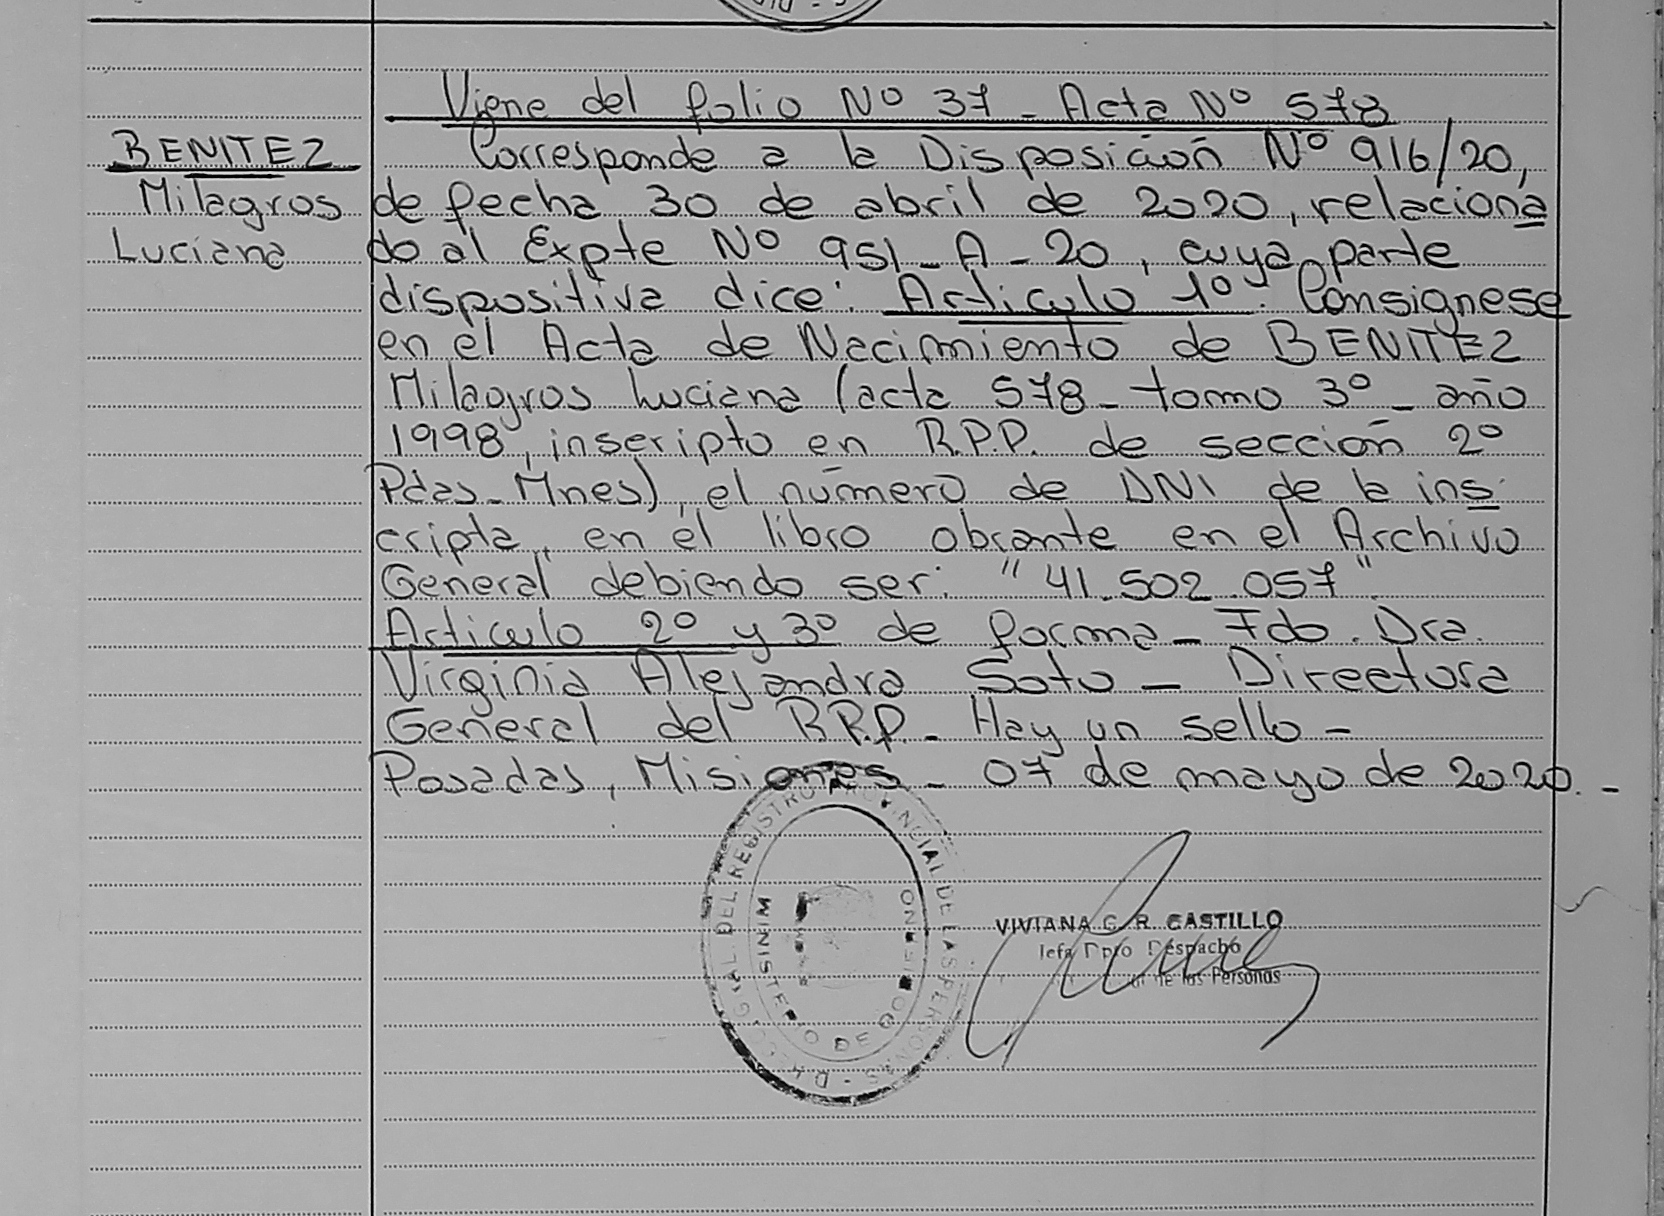 Viene del folio Nº 37 - Acta Nº 578
BENITEZ
Milagros
Luciana
Corresponde a la Disposición Nº 916/20,
de fecha 30 de abril de 2020, relaciona
do al Expte Nº 951-A-20, cuya parte
dispositiva dice: Articulo 1º: Consignese
en el Acta de Nacimiento de BENITEZ
Milagros Luciana (acta 578 - tomo 3º - año
1998, inscripto en R.P.P. de sección 2º
Pdas-Mnes), el número de DNI de la ins
cripta, en el libro obrante en el Archivo
General debiendo ser: "41.502.057".
Articulo 2º y 3º de forma - Fdo. Dra.
Virginia Alejandra Soto - Directora
General del R.P.P. - Hay un sello -
Posadas, Misiones - 07 de mayo de 2020.-
DEL REGISTRO PROVINCIAL DE LAS PERSONAS
MINISTERIO DE GOBIERNO
VIVIANA G. R. CASTILLO
Jefa Dpto Despacho
de las Personas